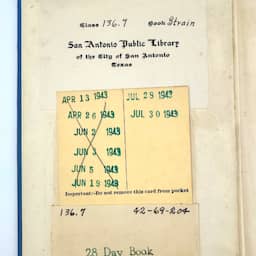 Class 136.7 Book Strain
San Antonio Public Library
of the City of San Antonio
Texas
APR 13 1943 JUL 29 1943
APR 26 1943 JUL 30 1943
JUN 2 1943
JUN 3 1943
JUN 5 1943
JUN 19 1943
Important:-Do not remove this card from pocket
136.7 42-69-204
28 Day Book